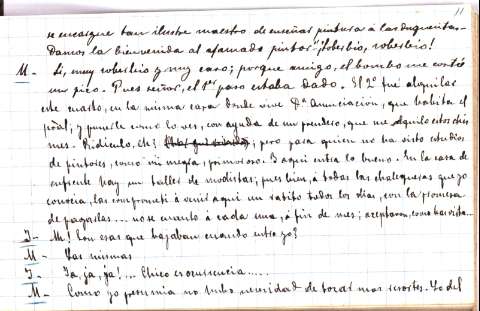 11
se encargue tan ilustre maestro de enseñar pintura á las duquesitas.
Damos la bienvenida al afamado pintor" ¡Soberbio, soberbio!
M - Sí, muy soberbio y muy caro; porque amigo, el bombo me costó
un pico. Pues señor, el 1er paso estaba dado. El 2º fué alquilar
este cuarto, en la misma casa donde vive Dª Anunciacion, que habita el
pral; y ponerlo como lo ves, con ayuda de un prendero, que me alquiló estos chis
mes. Ridículo, eh! pero para quien no ha visto estudios
de pintores, como mi suegra, primoroso. Y aquí entra lo bueno. En la casa de
enfrente hay un taller de modistas; pues bien, á todas las chalequeras que yo
conocia, las comprometí á venir aquí un ratito todos los dias, con la promesa
de pagarlas... no se cuanto á cada una, á fin de mes; aceptaron, como has visto...
J - Ah! Son esas que bajaban cuando entré yo?
M - Las mismas
J - Ja, ja, ja!... Chico es ocurrencia.....
M - Como yo presumia no hubo necesidad de tocar mas resortes. Yo del